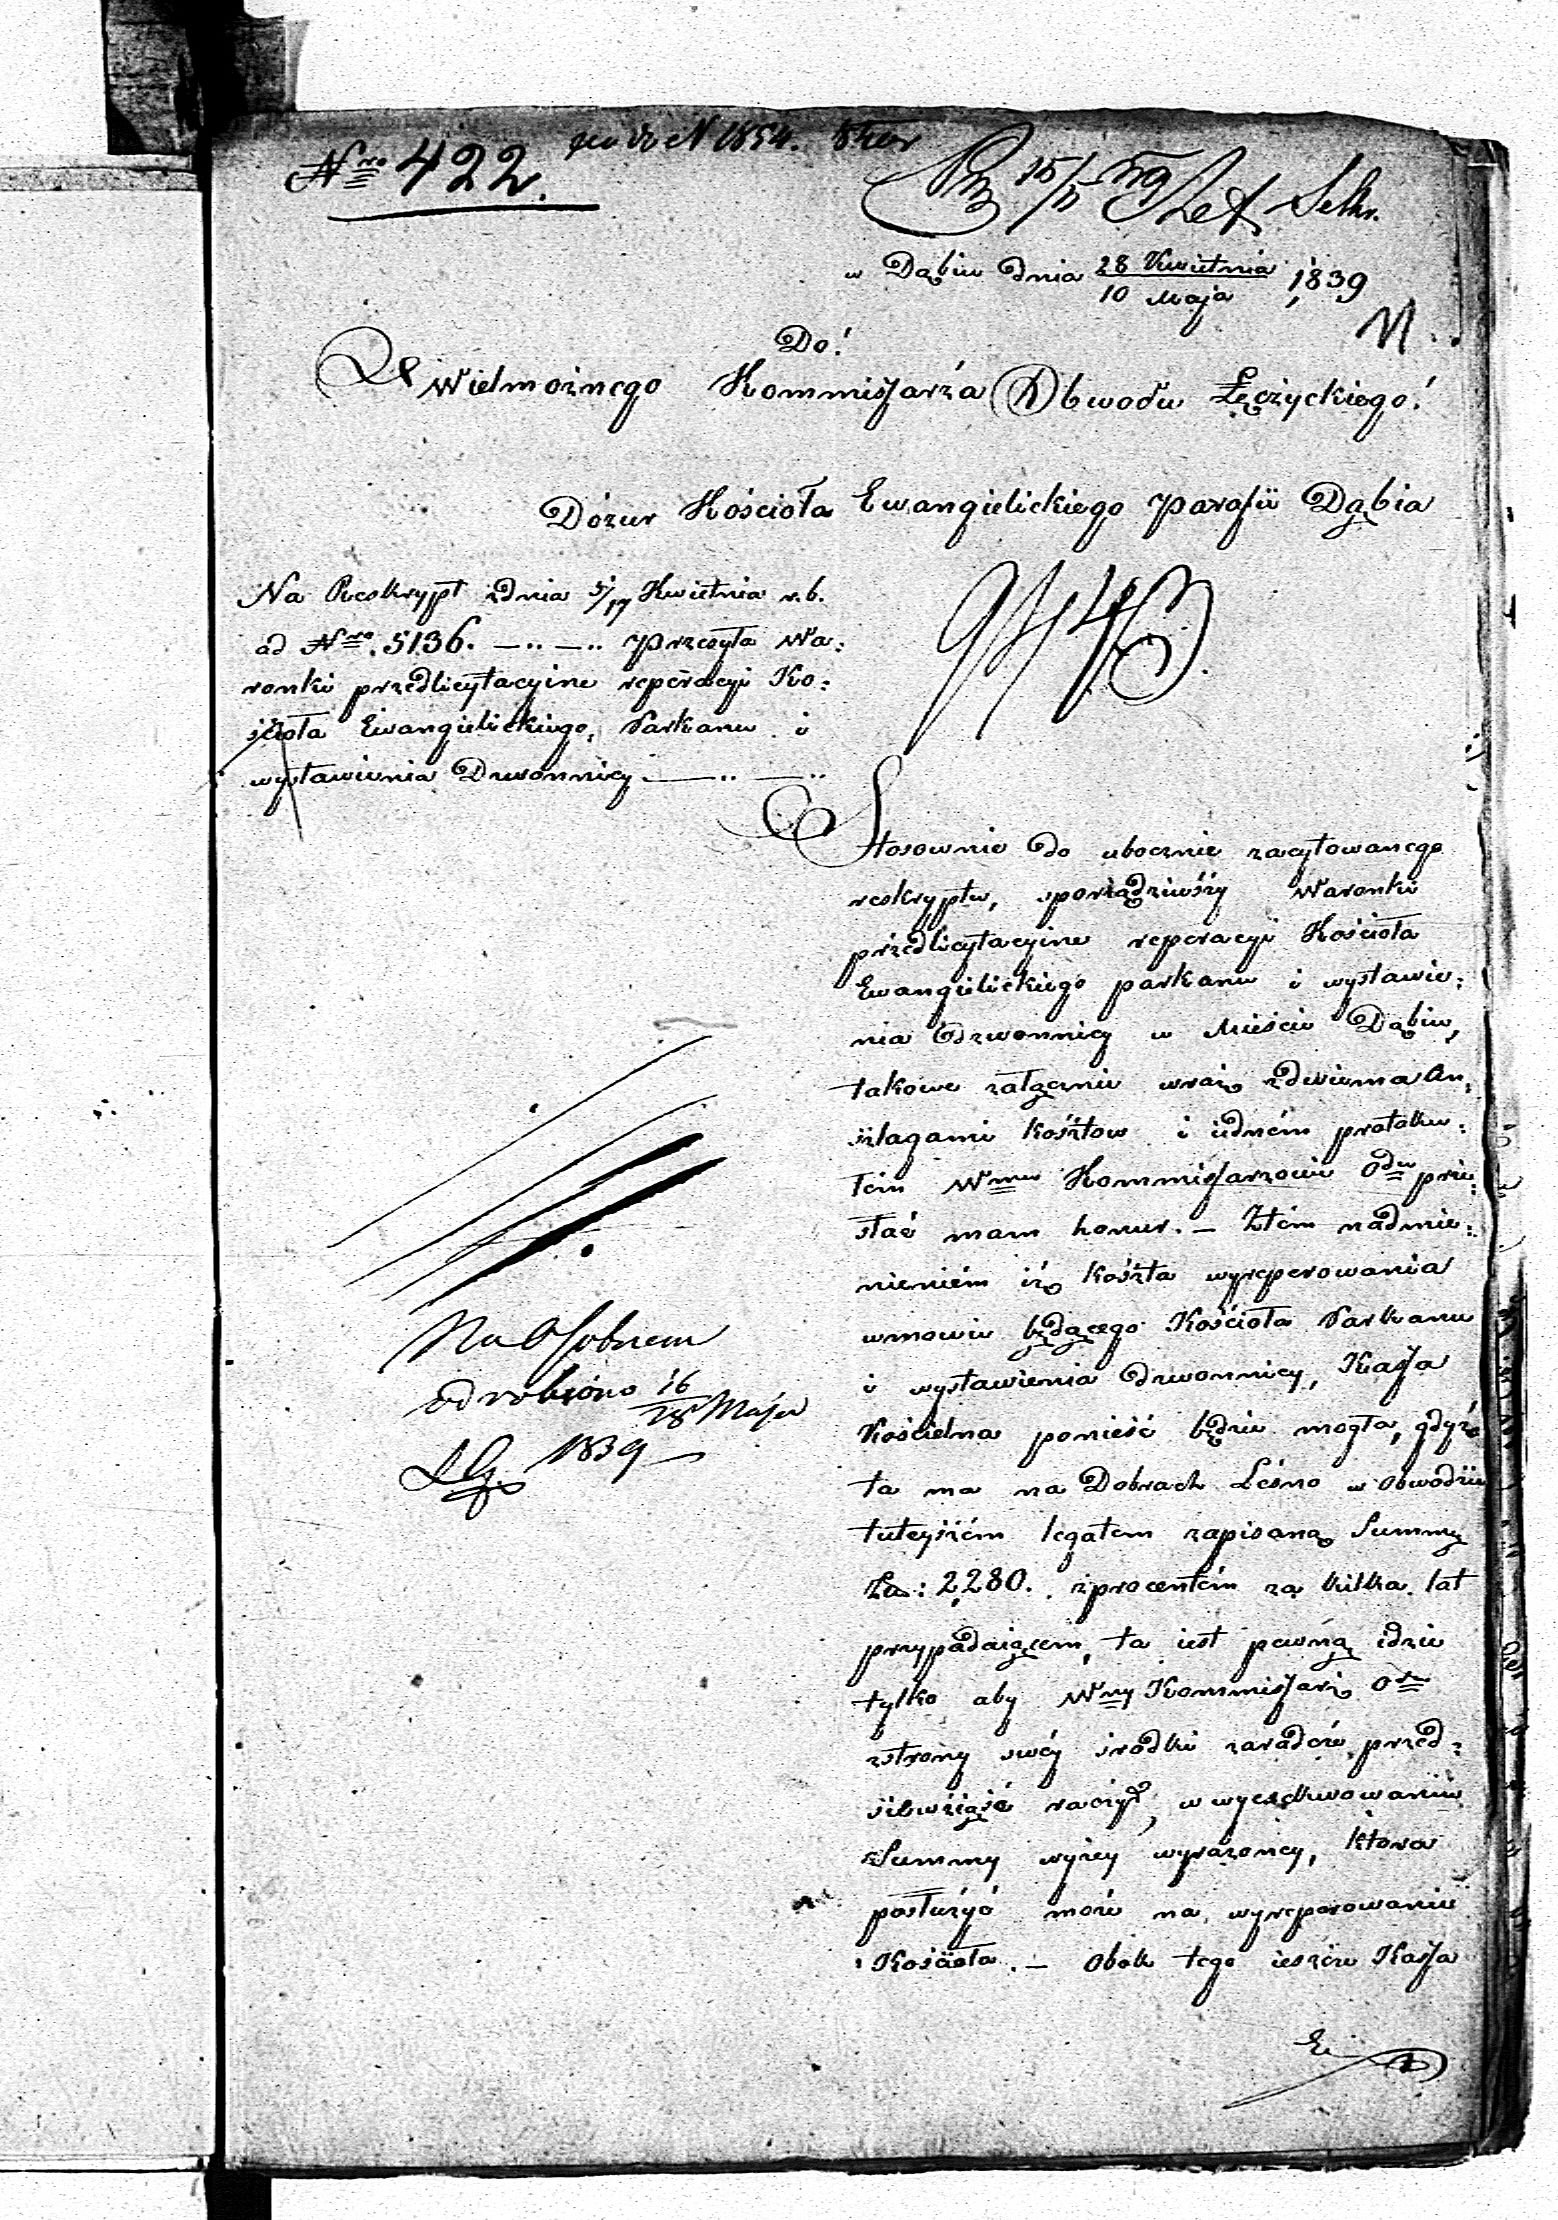 Nro 422.
N 1854.
15/5 39 Sekr.
w Dąbiu dnia 28 Kwietnia / 10 Maja 1839
Do!
Wielmożnego Kommissarza Obwodu Łęczyckiego!
Dozur Kościoła Ewangielickiego parafii Dąbia
Na Reskrypt zdnia 5/17 Kwietnia r.b.
ad Nro. 5136. —..—.. przesyła Wa:
ronki przedlicytacyine reperacyi Ko:
ścioła Ewangielickiego, Parkanu i
wystawienia Dzwonnicy —..—..
9443.
Stosownie do ubocznie zacytowanego
reskryptu, sporządziwszy Waronki
przedlicytacyine reperacyi Kościoła
Ewangielickiego parkanu i wystawie:
nia Dzwonnicy w Mieście Dąbiu,
takowe załącznie wraz zdwiema An:
szlagami kosztow i iedném protoku:
łem Wmu Kommissarzowi Odu prze:
słać mam honur. — Ztém nadmie:
nieniém iż koszta wyreperowania
wmowie będącego Kościoła Parkanu
i wystawienia dzwonnicy, Kassa
Kościelna ponieść będzie mogła, gdyż
ta ma na Dobrach Leśno w Obwodzie
tuteyszém legatem zapisaną Summę
Za: 2,280. zprocentém za kilka lat
przypadaiącem, ta iest pewną idzie
tylko aby Wny Kommissarz
zstrony swéy srodki zaradcze przed:
siewziąść raczył, w wyexekwowaniu
Summy wyżey wyrażoney, ktora
posłużyć może na wyreperowanie
Kościoła. — Obok tego ieszcze Kassa
Na Osobnem
odrobiono 16/28 Maja
1839